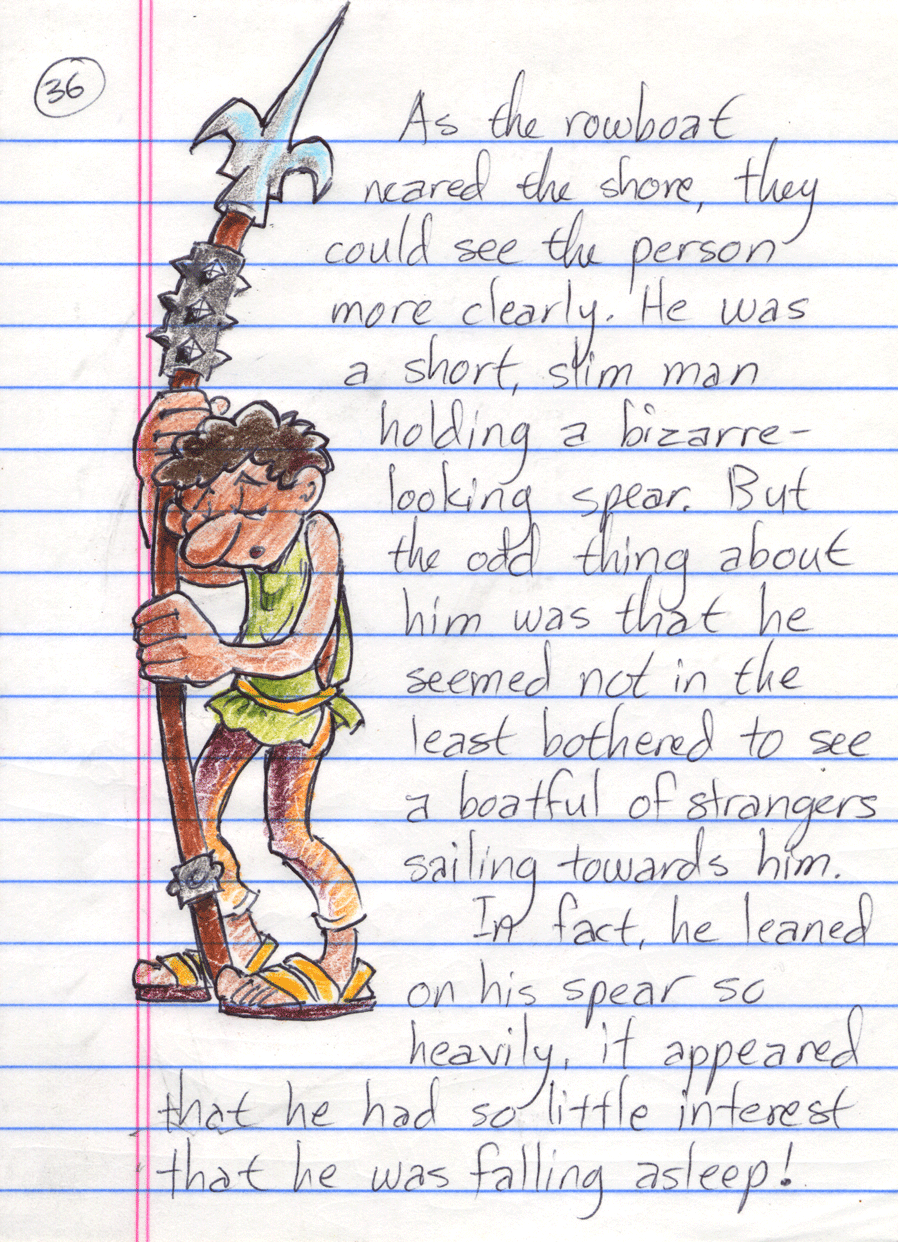 36
As the rowboat
neared the shore, they
could see the person
more clearly. He was
a short, slim man
holding a bizarre-
looking spear. But
the odd thing about
him was that he
seemed not in the
least bothered to see
a boatful of strangers
sailing towards him.
In fact, he leaned
on his spear so
heavily, it appeared
that he had so little interest
that he was falling asleep!